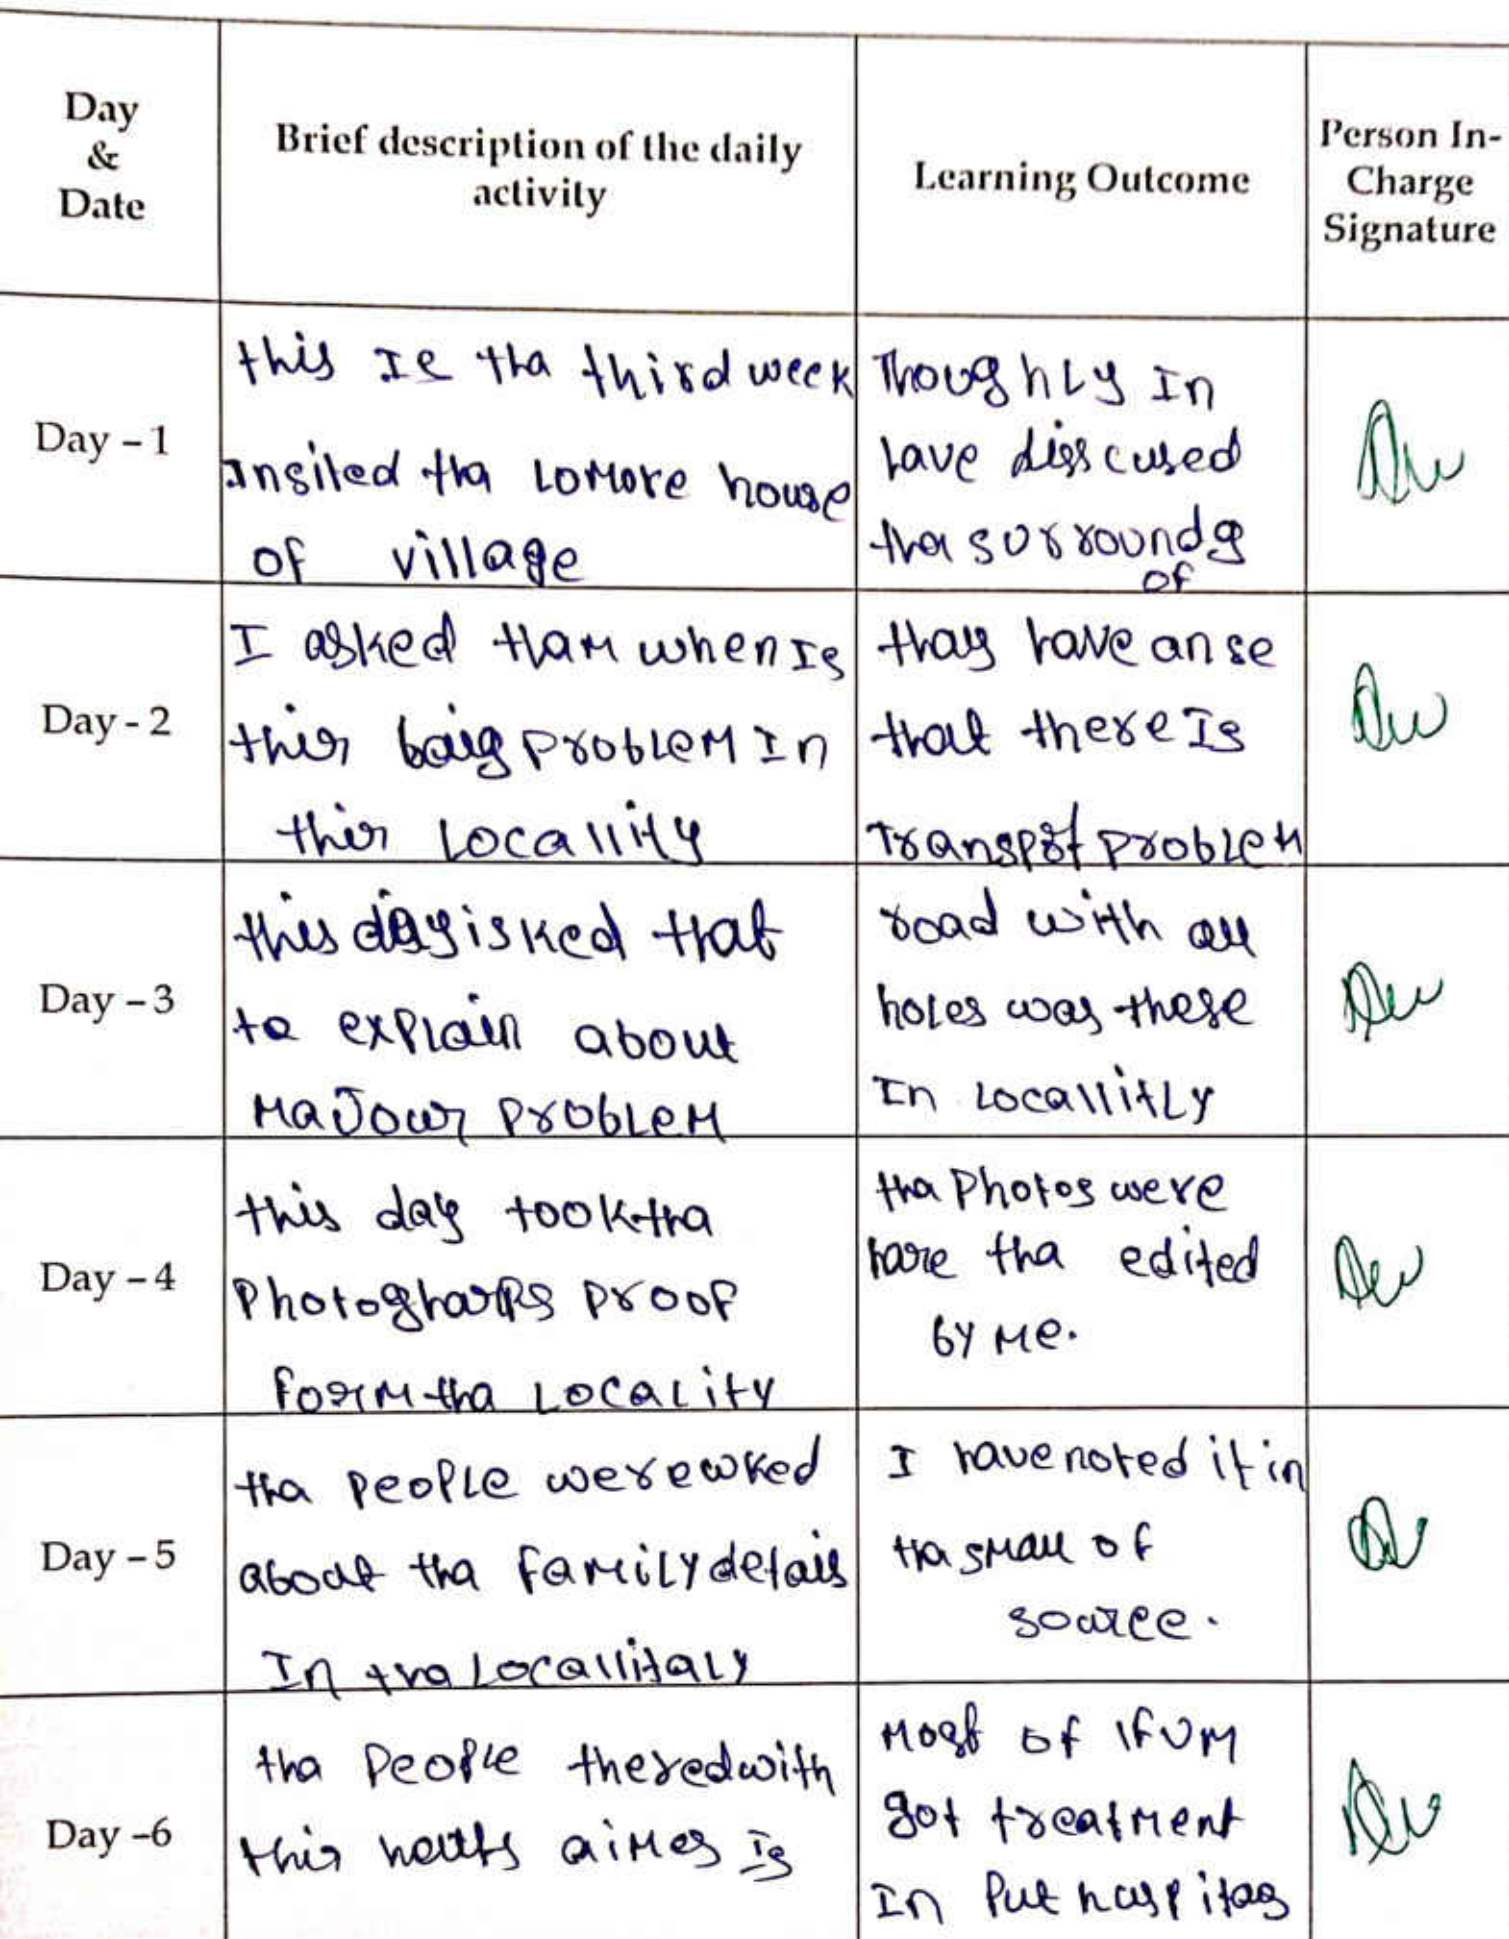 Day
&
Date
Brief description of the daily
activity
Learning Outcome
Person In-
Charge
Signature
Day - 1
this Ie tha third week
Insited tha LoMore house
of village
Thoughly In
have disscused
tha surroundg
of
Day - 2
I asked tham when Is
thir baig problem In
thir Locallity
thay have an se
that there Is
Transport problem
Day - 3
this day isked that
ta explain about
Majour problem
road with all
holes was these
In Locallitly
Day - 4
this day took tha
Photogharps proof
form tha Locality
tha Photos were
hare tha edited
by Me.
Day - 5
tha People were
about tha family detais
In tha Locallitaly
I have noted it in
tha small of
source.
Day -6
tha People thered with
thir aimes Is
Most of
got treatment
In Put haspitas